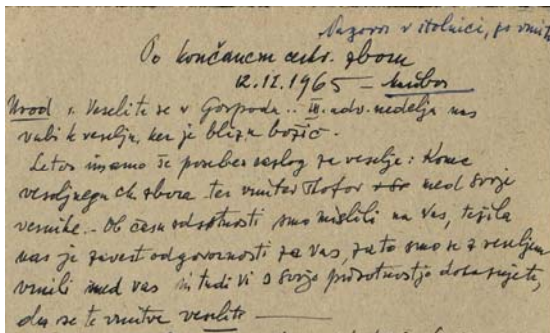 Nagovor v stolnici, po vrnitvi
Po končanem cerkv. zboru
12.XII.1965 – Maribor
Uvod: Veselite se v Gospodu.. III. adv. nedelja nas
vabi k veselju, ker je blizu božič.
Letos imamo še poseben razlog za veselje: Konec
vesoljnega ck. zbora ter vrnitev škofov med svoje
vernike. – Ob času odsotnosti smo mislili na vas, težila
nas je zavest odgovornosti za vas, zato smo se z veseljem
vrnili med vas in tudi vi s svojo prisotnostjo dokazujete,
da se te vrnitve veselite